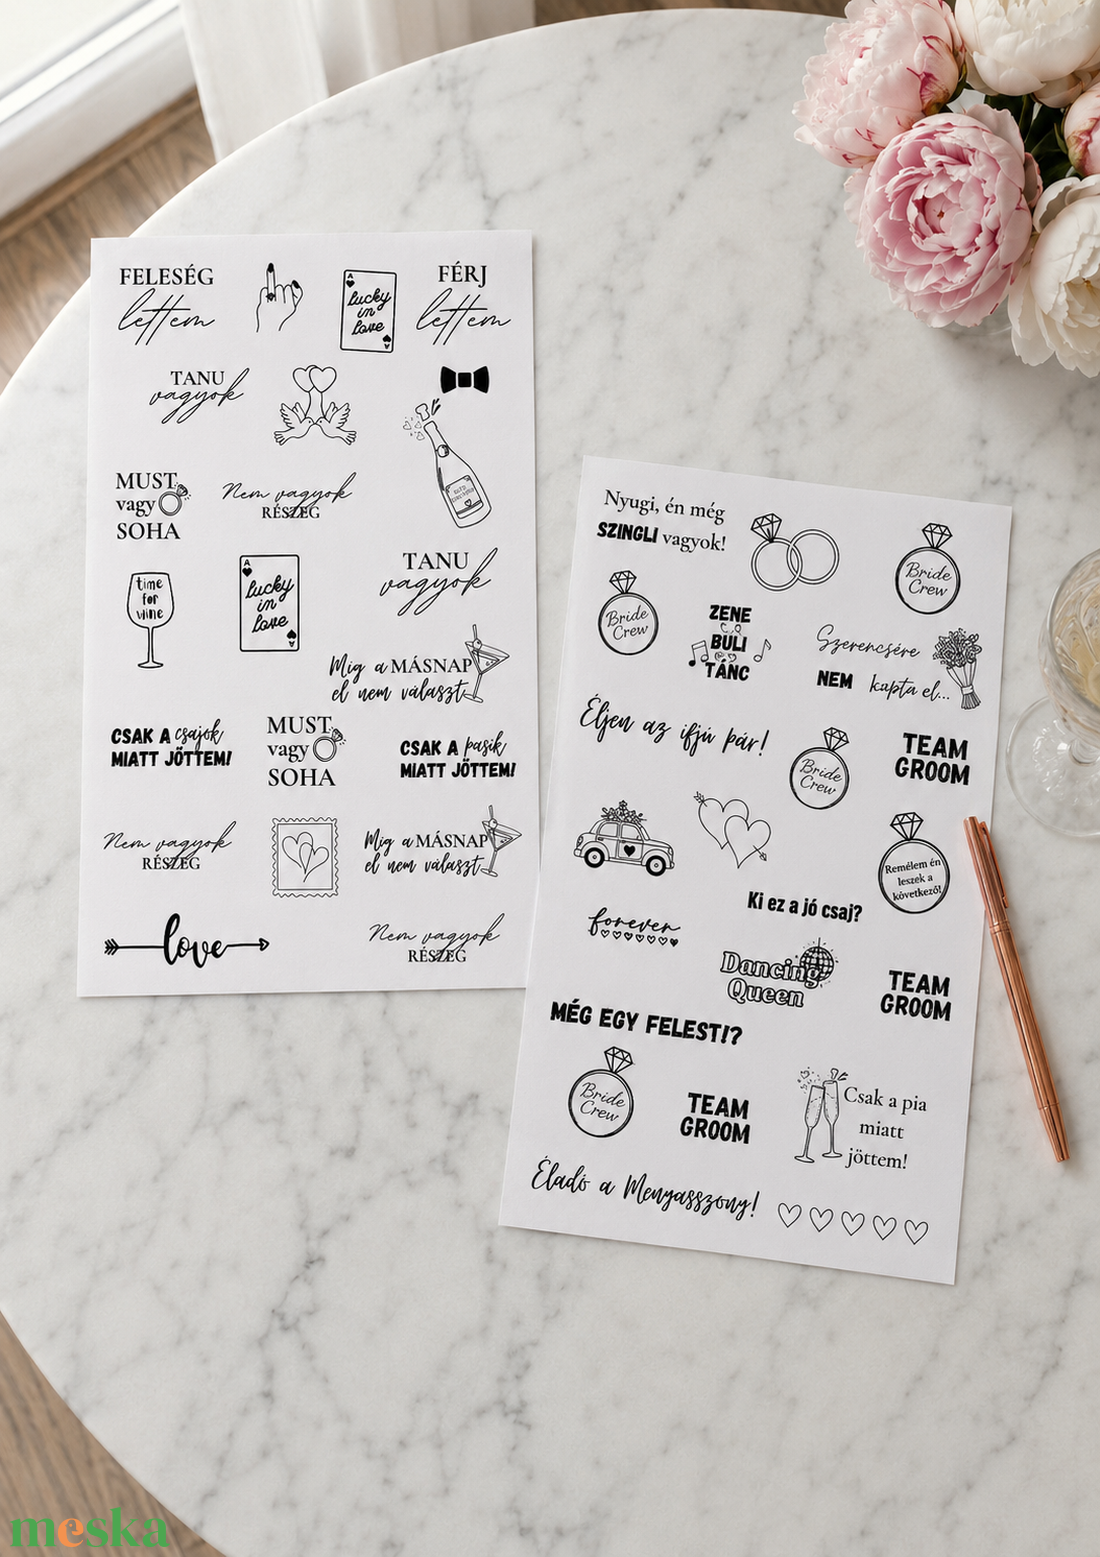 FELESÉG
lettem
A
lucky
in
love
A
FÉRJ
lettem
TANU
vagyok
MUST
vagy
SOHA
Nem vagyok
RÉSZEG
time
for
wine
A
lucky
in
love
A
TANU
vagyok
Míg a MÁSNAP
el nem választ
CSAK A csajok
MIATT JÖTTEM!
MUST
vagy
SOHA
CSAK A pasik
MIATT JÖTTEM!
Nem vagyok
RÉSZEG
Míg a MÁSNAP
el nem választ
love
Nem vagyok
RÉSZEG
Nyugi, én még
SZINGLI vagyok!
Bride
Crew
Bride
Crew
ZENE
BULI
TÁNC
Szerencsére
NEM kapta el...
Éljen az ifjú pár!
Bride
Crew
TEAM
GROOM
Remélem én
leszek a
következő!
Ki ez a jó csaj?
forever
Dancing
Queen
TEAM
GROOM
MÉG EGY FELEST!?
Bride
Crew
TEAM
GROOM
Csak a pia
miatt
jöttem!
Éladó a Menyasszony!
meska